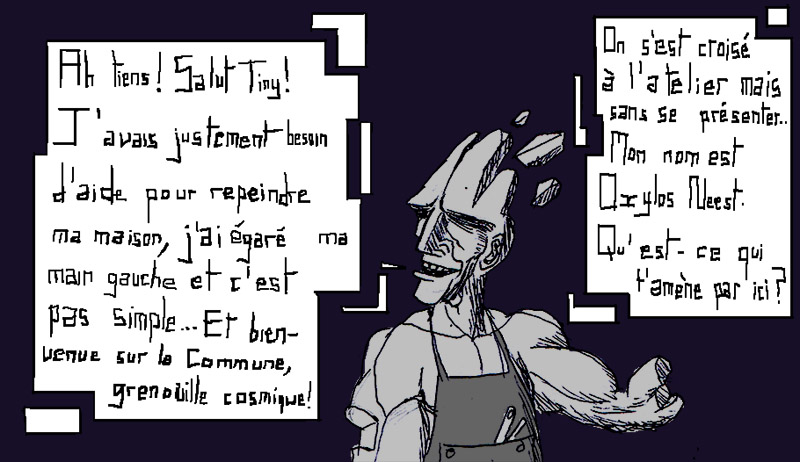 Ah tiens! Salut Tiny!
J'avais justement besoin
d'aide pour repeindre
ma maison, j'ai égaré ma
main gauche et c'est
pas simple... Et bien-
venue sur la Commune,
grenouille cosmique!
On s'est croisé
à l'atelier mais
sans se présenter..
Mon nom est
Oxylos Neest.
Qu'est-ce qui
t'amène par ici?